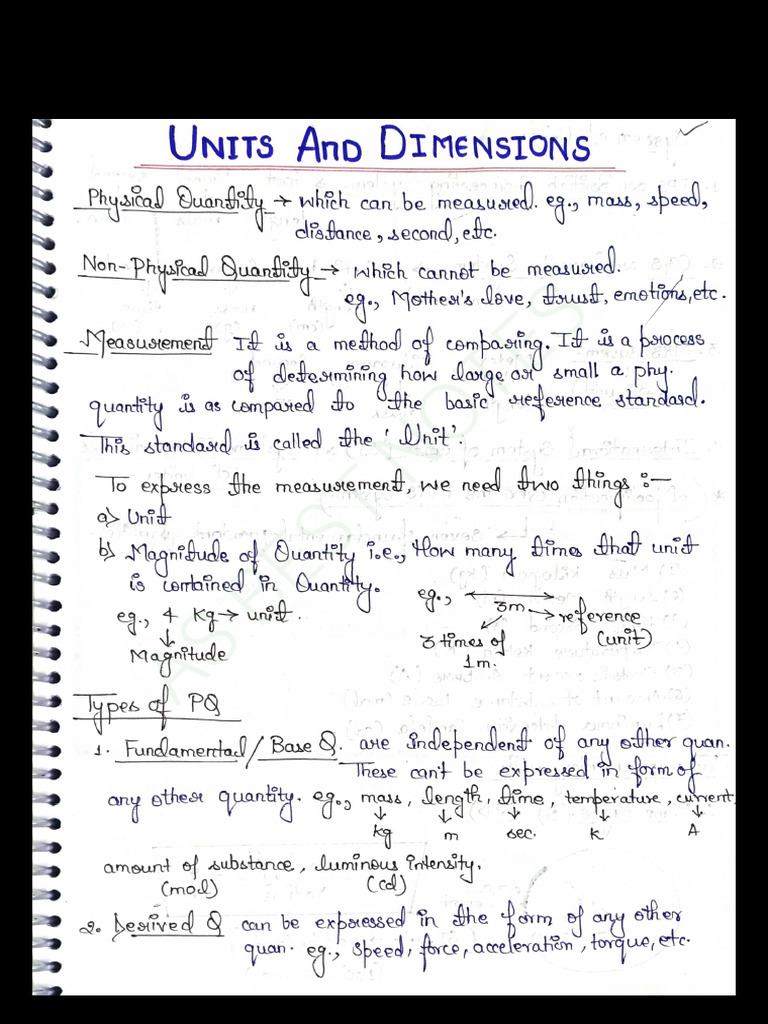 UNITS AND DIMENSIONS
Physical Quantity → which can be measured. eg., mass, speed,
distance, second, etc.
Non-Physical Quantity → which cannot be measured.
eg., Mother's love, trust, emotions, etc.
Measurement It is a method of comparing. It is a process
of determining how large or small a phy.
quantity is as compared to the basic reference standard.
This standard is called the 'Unit'.
To express the measurement, we need two things :-
a) Unit
b) Magnitude of Quantity i.e., How many times that unit
is contained in Quantity.
eg., 4 Kg → unit.
Magnitude
eg., 3m → reference
(unit)
3 times of
1m.
Types of PQ
1. Fundamental / Base Q. are independent of any other quan.
These can't be expressed in form of
any other quantity. eg., mass, length, time, temperature, current,
kg m sec. K A
amount of substance, luminous intensity.
(mol) (cd)
2. Derived Q can be expressed in the form of any other
quan. eg., speed, force, acceleration, torque, etc.